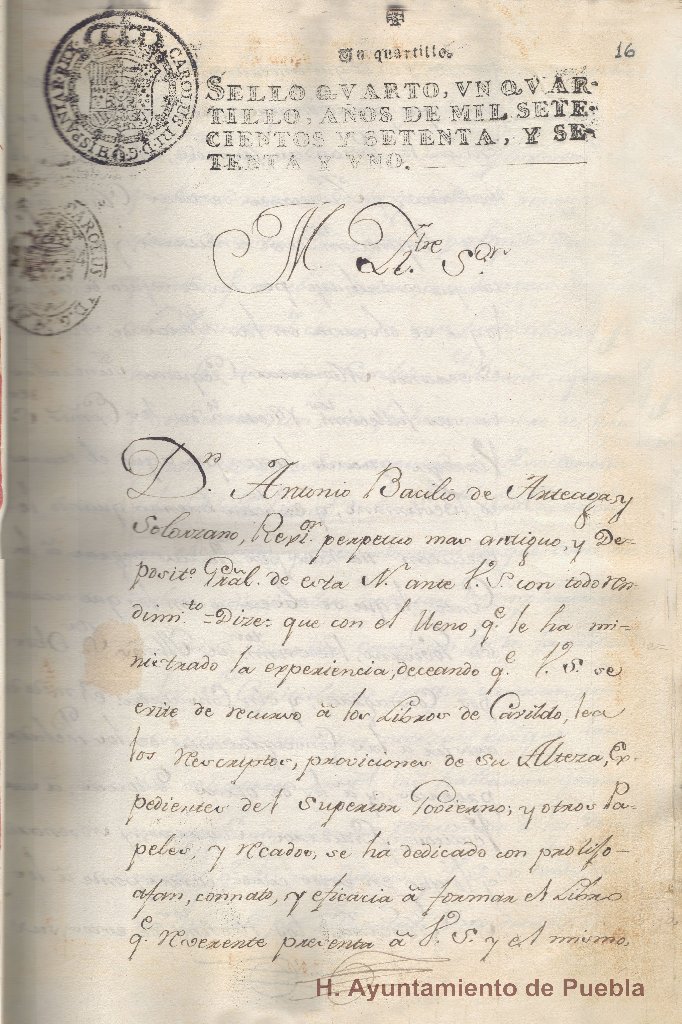 16
Un quartillo.
CAROLUS III D.G. HISPANIAR REX
SELLO QVARTO, VN QVAR-
TILLO, AÑOS DE MIL SETE-
CIENTOS Y SETENTA, Y SE-
TENTA Y VNO.
CAROLUS D.G.
M Iltre Sor
Dn. Antonio Bacilio de Arteaga, y
Solorzano, Rexor. perpetuo mas antiguo, y De-
posito Gral. de esta N. ante V.S. con todo ren-
dimto = Dize = que con el lleno, qe. le ha mi-
nistrado la experiencia, deceando qe. V.S. se
evite de recurso â los Libros de Cavildo, lea
los Rescriptos, proviciones de su Alteza, Ex-
pedientes del Superior Govierno, y otros Pa-
peles, y recados, se há dedicado con prolijo
afan, connato, y eficacia â formar el Libro
qe. Reverente presenta â V.S. y el mismo,
H. Ayuntamiento de Puebla